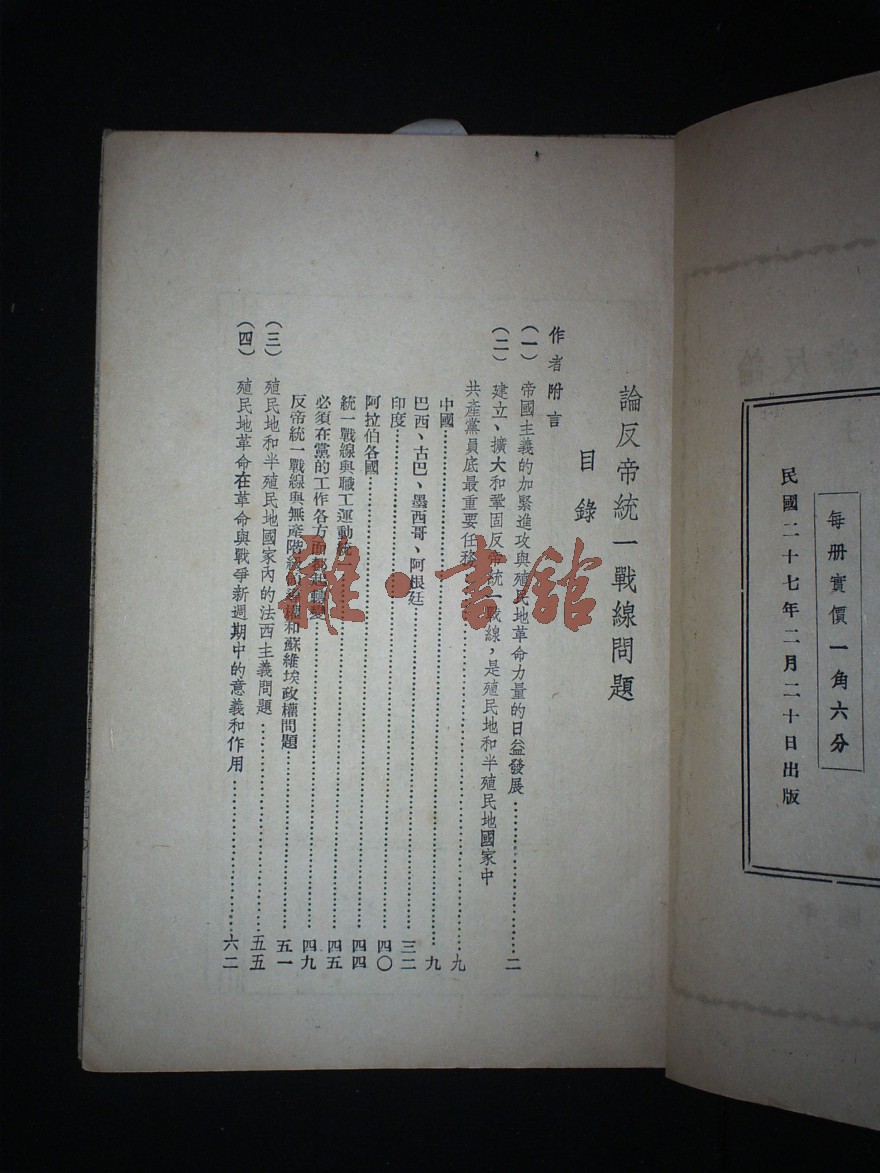 每册實價一角六分
民國二十七年二月二十日出版
論反帝統一戰線問題
目錄
作者附言
(一) 帝國主義的加緊進攻與殖民地革命力量的日益發展……二
(二) 建立、擴大和鞏固反帝統一戰線，是殖民地和半殖民地國家中
共產黨員底最重要任務……九
中國……九
巴西、古巴、墨西哥、阿根廷……三二
印度……四〇
阿拉伯各國……四四
統一戰線與職工運動統一……四五
必須在黨的工作各方面都起轉變……四九
反帝統一戰線與無產階級的和蘇維埃政權問題……五一
(三) 殖民地和半殖民地國家內的法西主義問題……五五
(四) 殖民地革命在革命與戰爭新週期中的意義和作用……六二
雅·書館